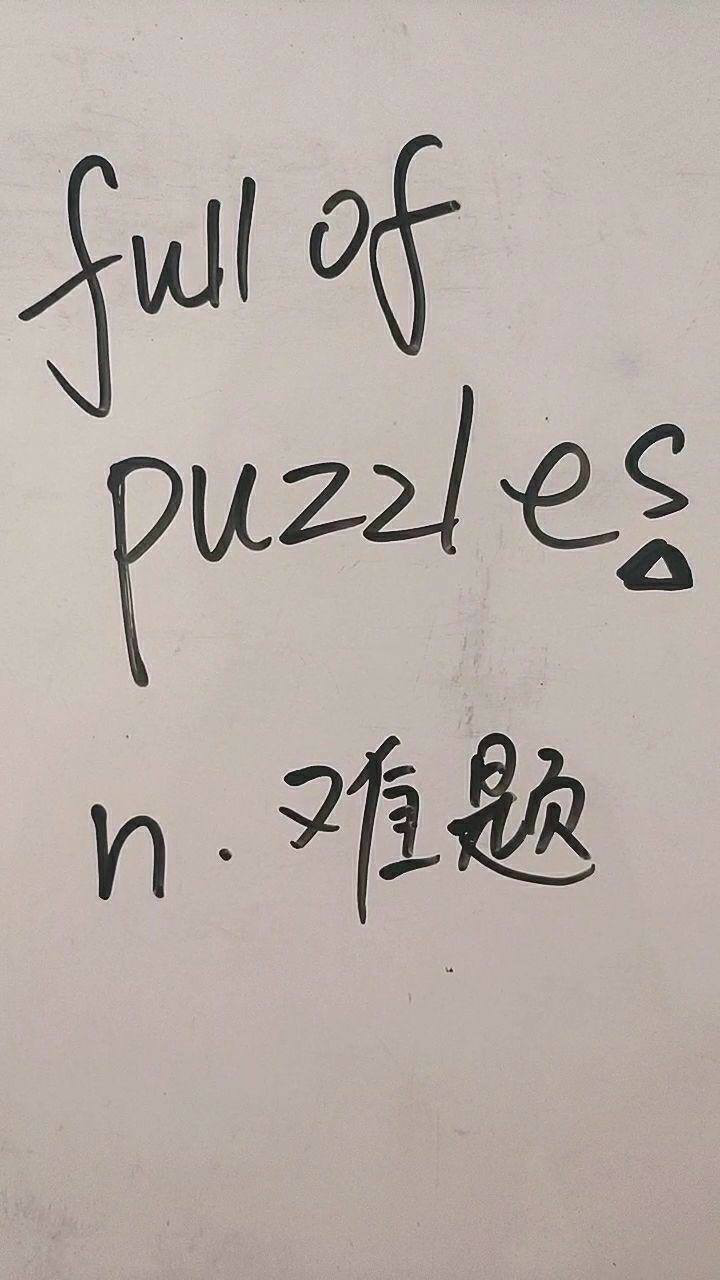 full of
puzzles
n. 难题